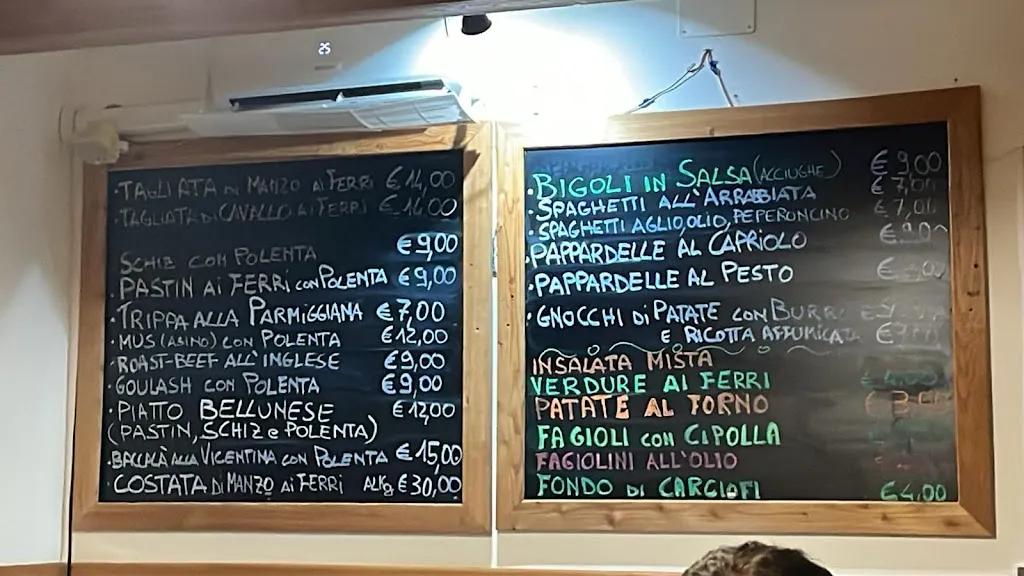 25
·TAGLIATA DI MANZO AI FERRI €14,00
·TAGLIATA DI CAVALLO AI FERRI €14,00
SCHIZ CON POLENTA €9,00
PASTIN AI FERRI CON POLENTA €9,00
·TRIPPA ALLA PARMIGGIANA €7,00
·MUS (ASINO) CON POLENTA €12,00
·ROAST-BEEF ALL'INGLESE €9,00
·GOULASH CON POLENTA €9,00
·PIATTO BELLUNESE €12,00
(PASTIN, SCHIZ e POLENTA)
·BACCALÀ ALLA VICENTINA CON POLENTA €15,00
·COSTATA DI MANZO AI FERRI AL Kg €30,00
·BIGOLI IN SALSA (ACCIUGHE) €9,00
·SPAGHETTI ALL'ARRABBIATA €7,00
·SPAGHETTI AGLIO, OLIO, PEPERONCINO €7,00
·PAPPARDELLE AL CAPRIOLO
·PAPPARDELLE AL PESTO
·GNOCCHI DI PATATE CON BURRO
E RICOTTA AFFUMICATA
INSALATA MISTA
VERDURE AI FERRI
PATATE AL FORNO
FAGIOLI CON CIPOLLA
FAGIOLINI ALL'OLIO
FONDO DI CARCIOFI €4,00